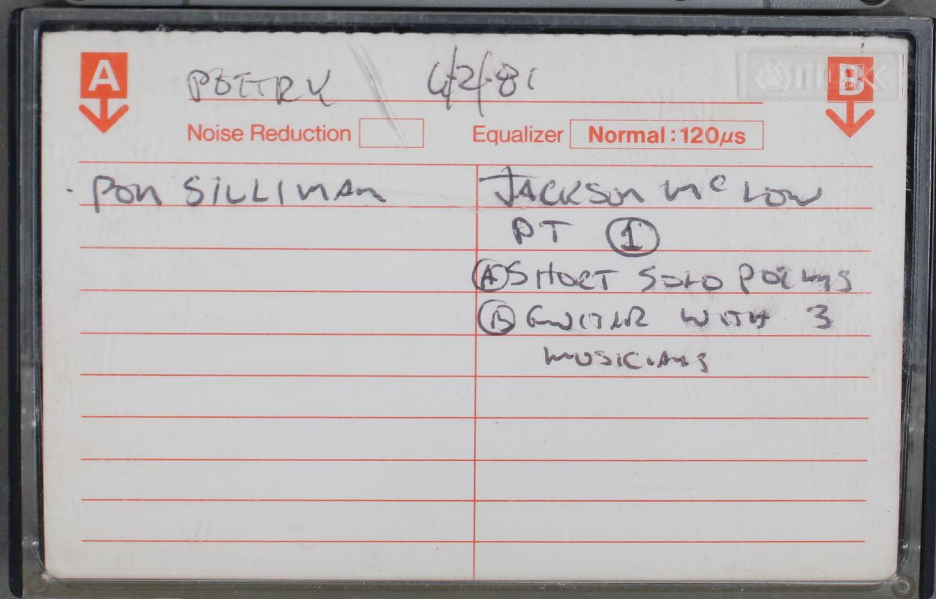 A B
POETRY 4/2/81
Noise Reduction Equalizer Normal:120µs
RON SILLIMAN
JACKSON Mc LOW
PT 1
A SHORT SOLO POEMS
B WITH 3
MUSICIANS